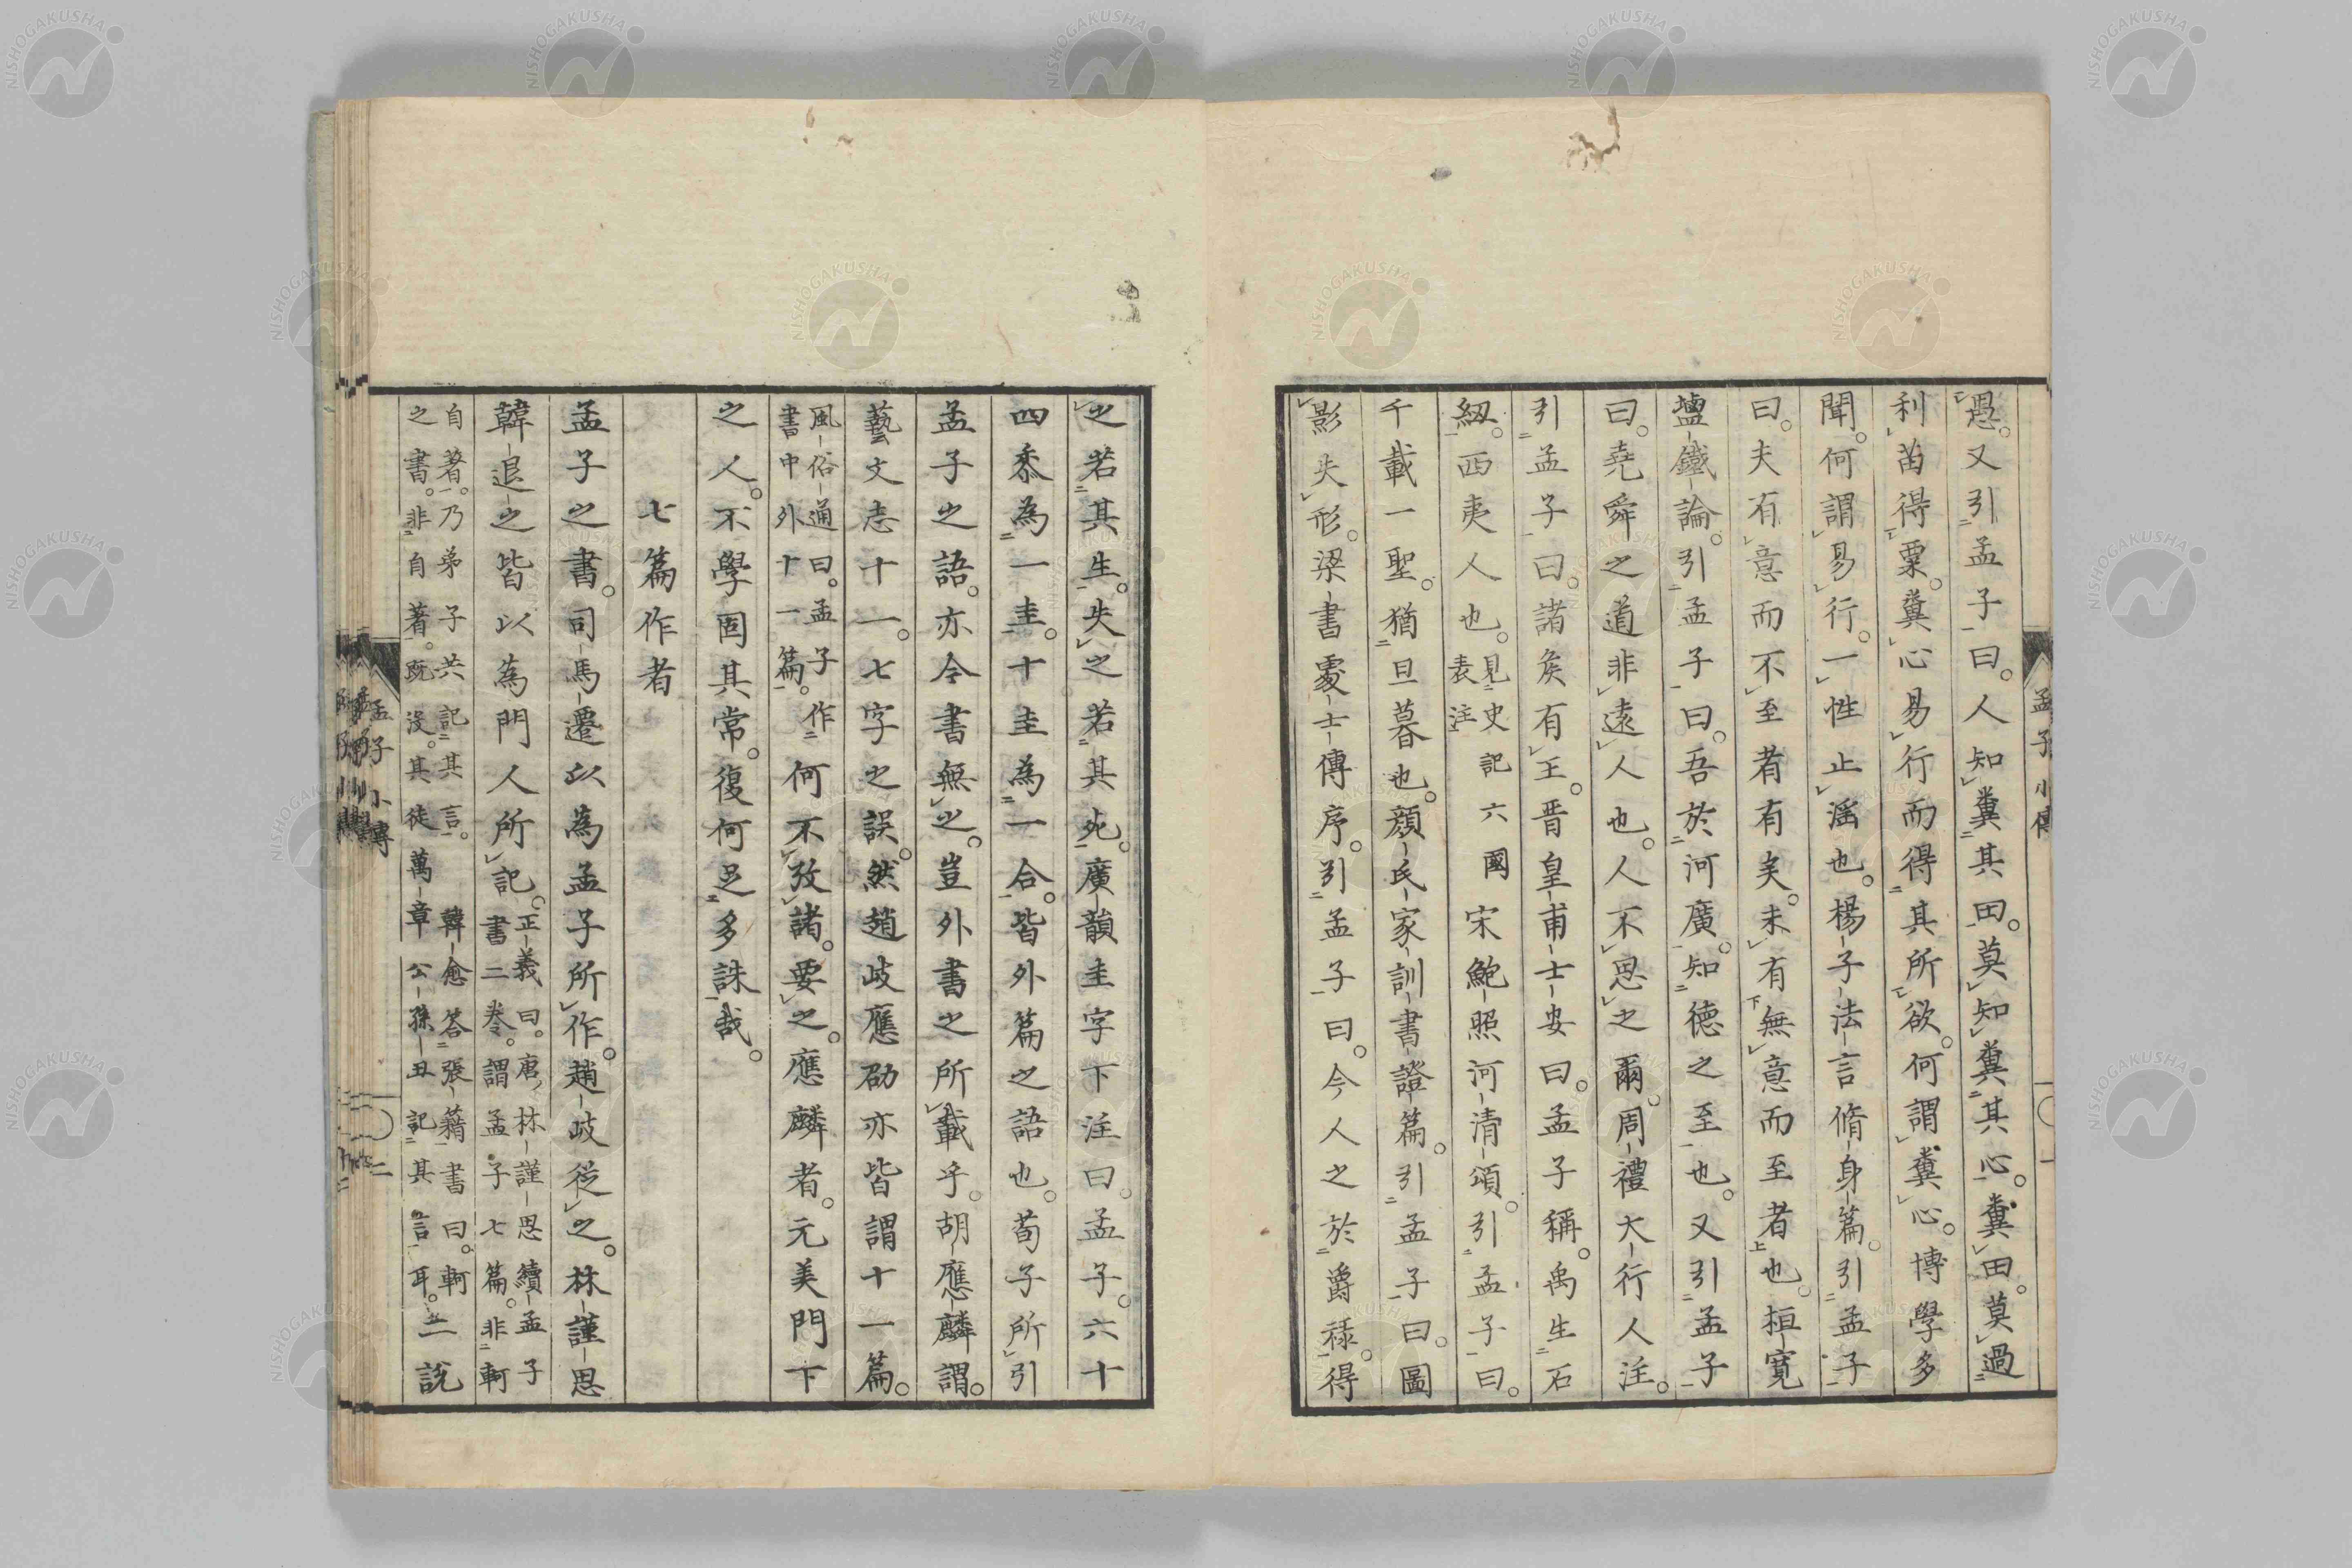 愚。又引孟子曰。人知糞其田。莫知糞其心。糞田。莫過
利苗得粟。糞心易行而得其所欲。何謂糞心。博學多
聞。何謂易行。一性止淫也。楊子法言脩身篇。引孟子
曰。夫有意而不至者有矣。未有無意而至者也。桓寬
塩鐵論。引孟子曰。吾於河廣。知德之至也。又引孟子
曰。堯舜之道非遠人也。人不思之爾。周禮大行人注。
引孟子曰。諸矦有王。晋皇甫士安曰。孟子稱。禹生石
紐。西夷人也。見史記六國表注宋鮑照河清頌。引孟子曰。
千載一聖。猶旦暮也。顔氏家訓書證篇。引孟子曰。圖
影失形。梁書處士傳序。引孟子曰。今人之於爵祿。得
孟子小傳
之若其生。失之若其死。廣韻圭字下注曰。孟子。六十
四黍為一圭。十圭為一合。皆外篇之語也。荀子所引
孟子之語。亦今書無之。豈外書之所載乎。胡應麟謂。
藝文志十一。七字之誤。然趙岐應劭亦皆謂十一篇。
風俗通曰。孟子作書中外十一篇。何不攷諸。要之。應麟者。元美門下
之人。不學固其常。復何足多誅哉。
七篇作者
孟子之書。司馬遷以為孟子所作。趙岐從之。林謹思
韓退之皆以為門人所記。正義曰。唐林謹思續孟子書二卷。謂孟子七篇。非軻
自著。乃弟子共記其言。韓愈答張籍書曰。軻之書。非自著。既沒。其徒萬章公孫丑記其言耳。二說
孟子小傳
二